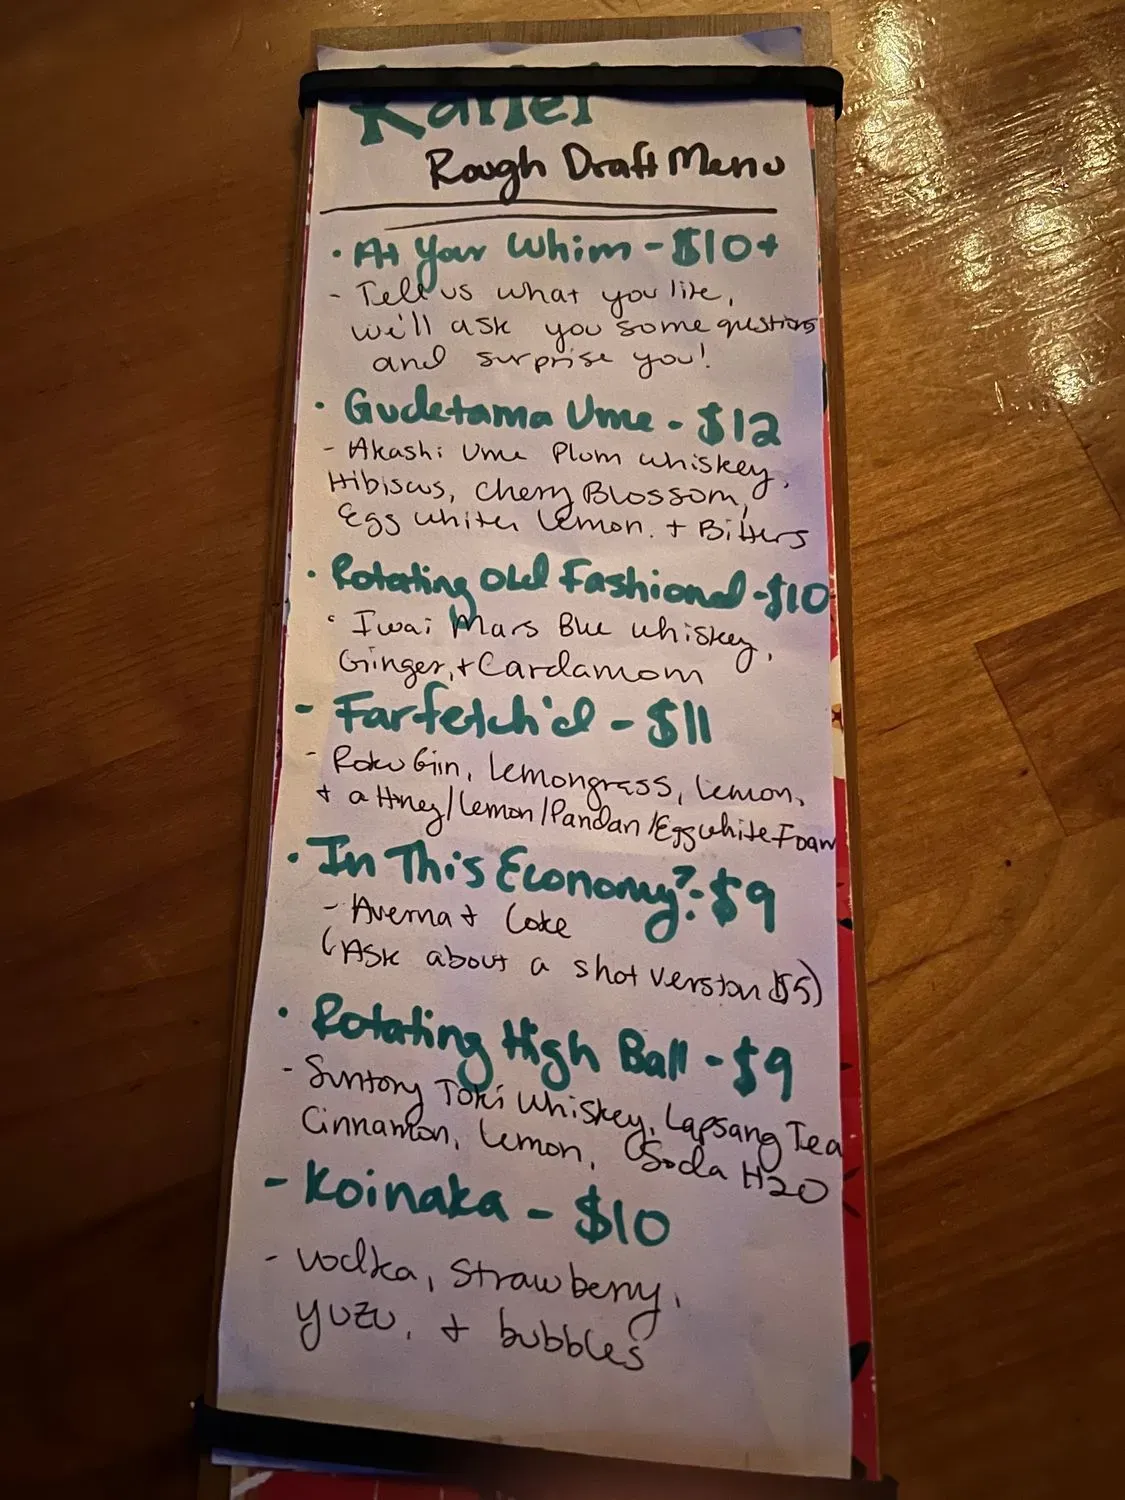 Rough Draft Menu
· At Your Whim - $10+
- Tell us what you like,
we'll ask you some questions
and surprise you!
· Gudetama Ume - $12
- Akashi Ume Plum Whiskey,
Hibiscus, Cherry Blossom,
Egg White, Lemon. + Bitters
· Rotating Old Fashional - $10
· Iwai Mars Blue Whiskey,
Ginger, + Cardamom
- Farfetch'd - $11
- Roku Gin, Lemongrass, Lemon,
+ a Honey/Lemon/Pandan/Egg White Foam
· In This Economy?- $9
- Averna + Coke
(Ask about a shot version $5)
· Rotating High Ball - $9
- Suntory Toki Whiskey, Lapsang Tea
Cinnamon, Lemon, Soda H2O
- Koinaka - $10
- Vodka, Strawberry,
yuzu, + bubbles